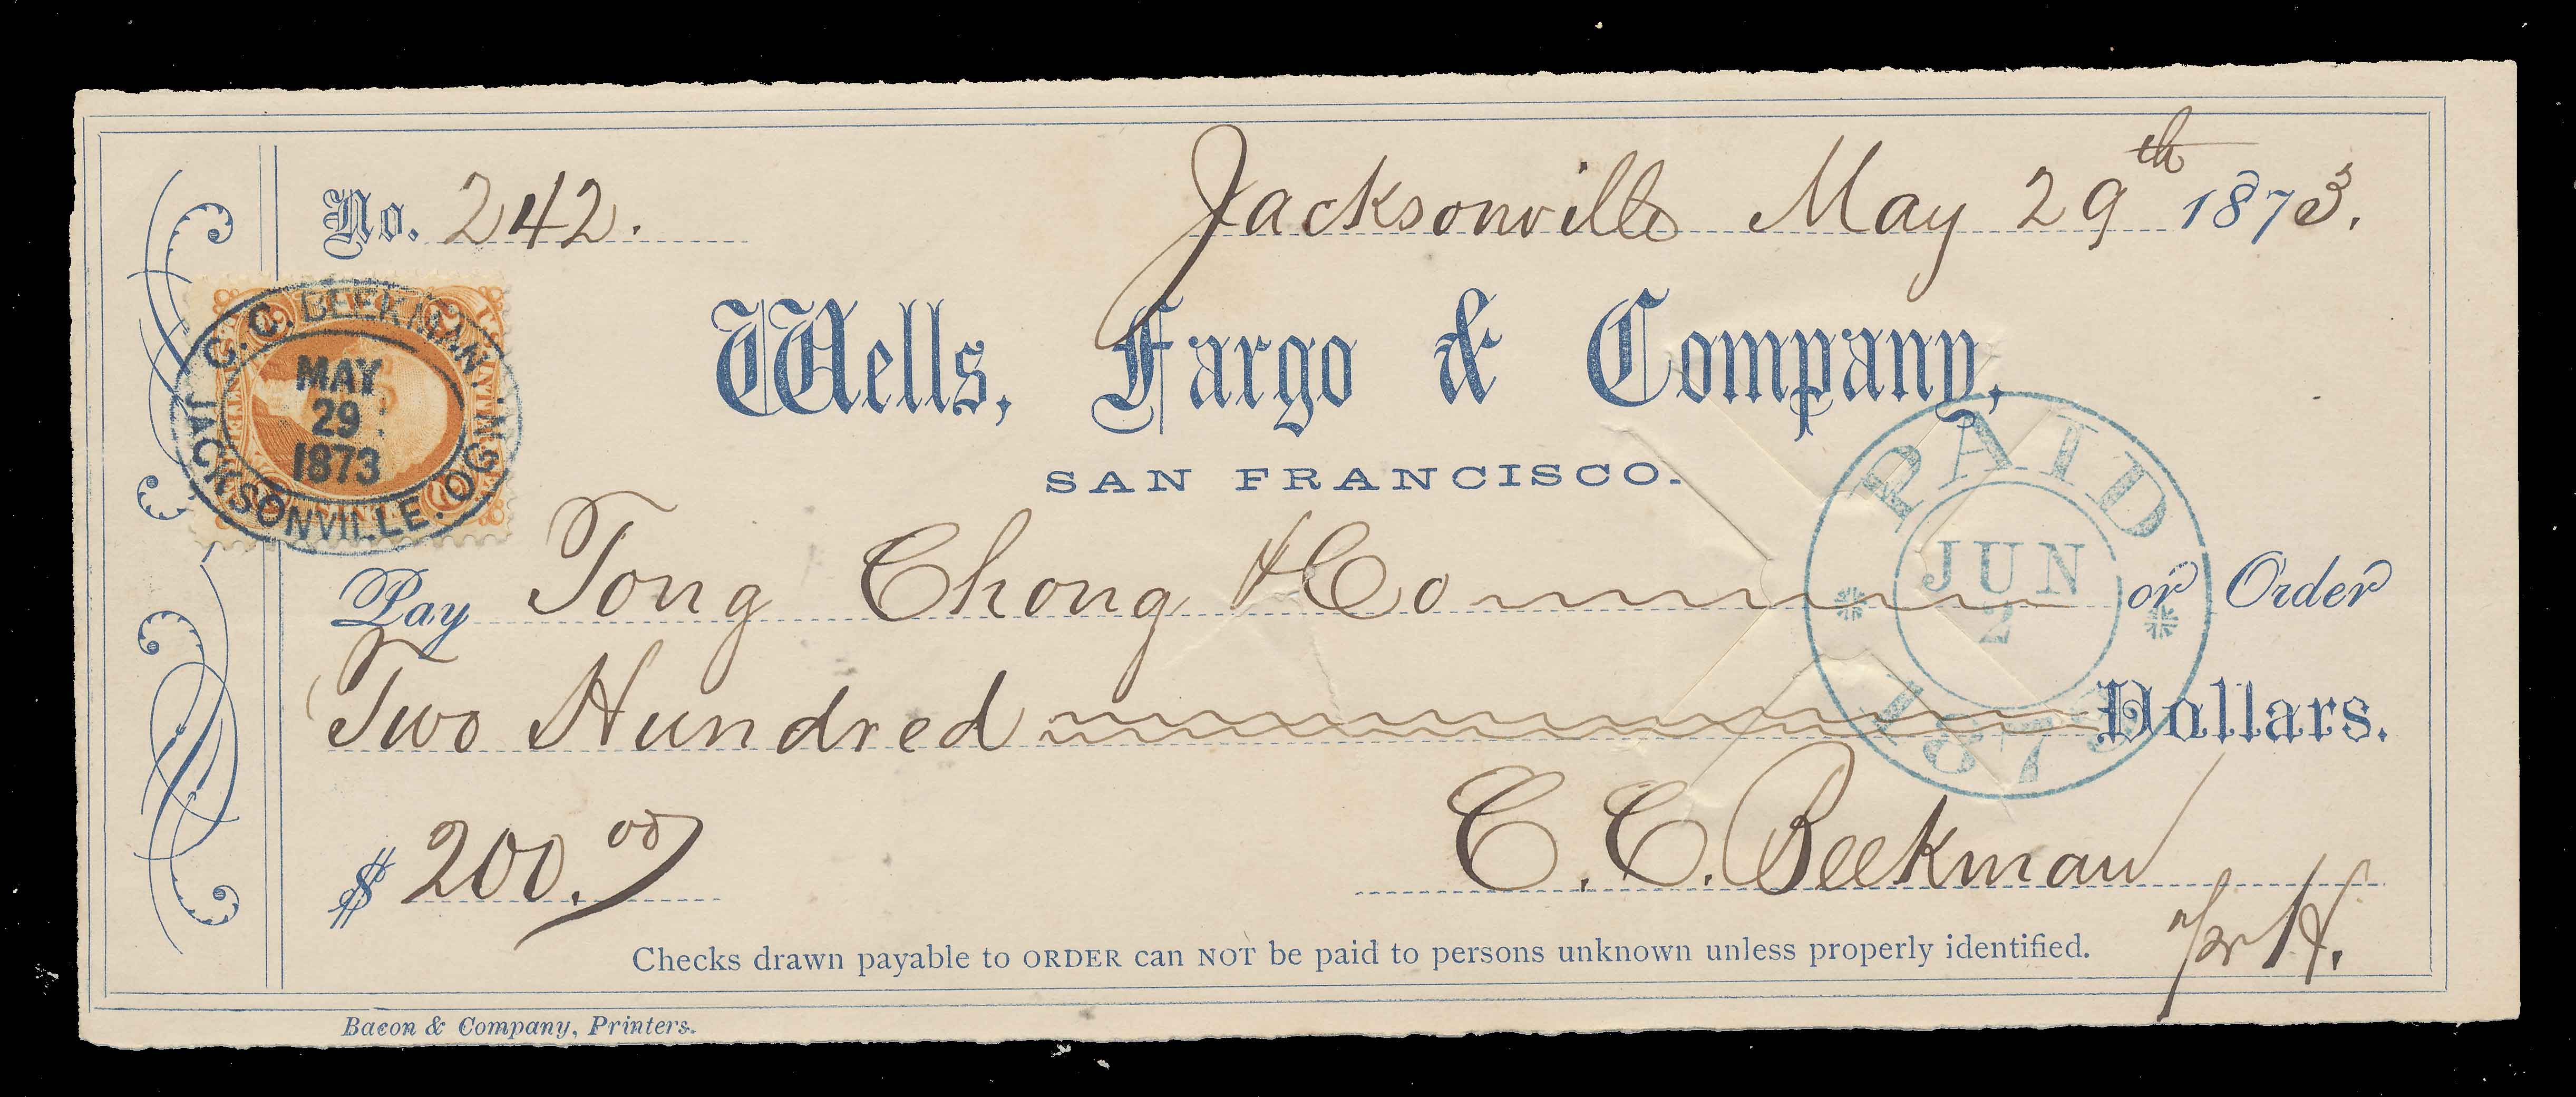 No. 242.
Jacksonville May 29th 1873.
C. C. BEEKMAN
MAY
29
1873
JACKSONVILLE. OGN
Wells, Fargo & Company,
SAN FRANCISCO.
PAID
JUN
2
1873
Pay Tong Chong & Co or Order
Two Hundred Dollars.
$ 200.00
C. C. Beekman
H.
Checks drawn payable to ORDER can NOT be paid to persons unknown unless properly identified.
Bacon & Company, Printers.